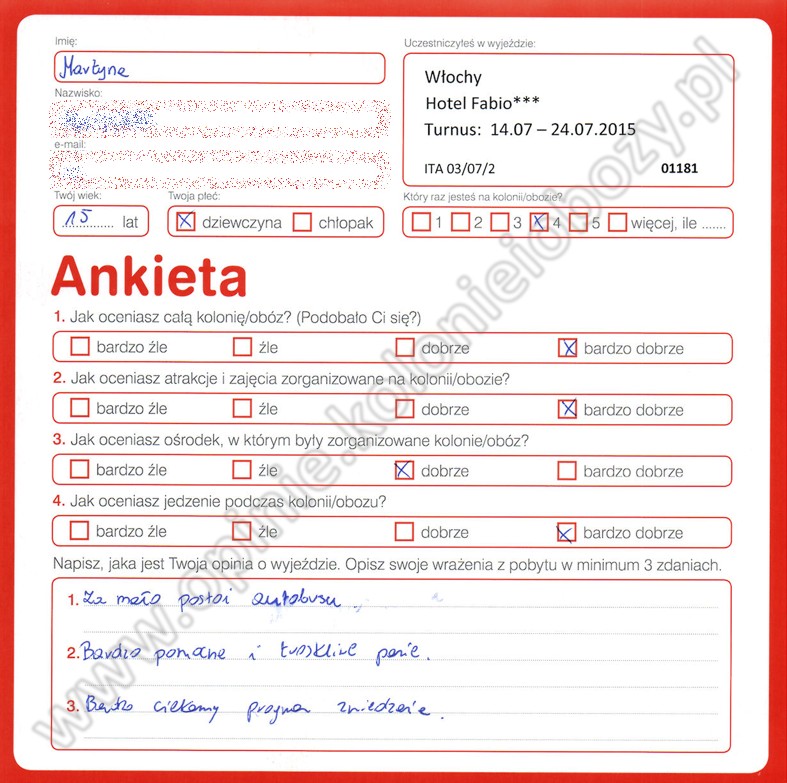 Imię:
Martyna
Nazwisko:
e-mail:
Twój wiek:
15 lat
Twoja płeć:
dziewczyna chłopak
Uczestniczyłeś w wyjeździe:
Włochy
Hotel Fabio***
Turnus: 14.07 – 24.07.2015
ITA 03/07/2 01181
Który raz jesteś na kolonii/obozie?
1 2 3 4 5 więcej, ile .......
Ankieta
1. Jak oceniasz całą kolonię/obóz? (Podobało Ci się?)
bardzo źle źle dobrze bardzo dobrze
2. Jak oceniasz atrakcje i zajęcia zorganizowane na kolonii/obozie?
bardzo źle źle dobrze bardzo dobrze
3. Jak oceniasz ośrodek, w którym były zorganizowane kolonie/obóz?
bardzo źle źle dobrze bardzo dobrze
4. Jak oceniasz jedzenie podczas kolonii/obozu?
bardzo źle źle dobrze bardzo dobrze
Napisz, jaka jest Twoja opinia o wyjeździe. Opisz swoje wrażenia z pobytu w minimum 3 zdaniach.
1. Za mało postoi autobusu
2. Bardzo pomocne i troskliwe panie.
3. Bardzo ciekawy program zwiedzania.
www.opinie.kolonieiobozy.pl